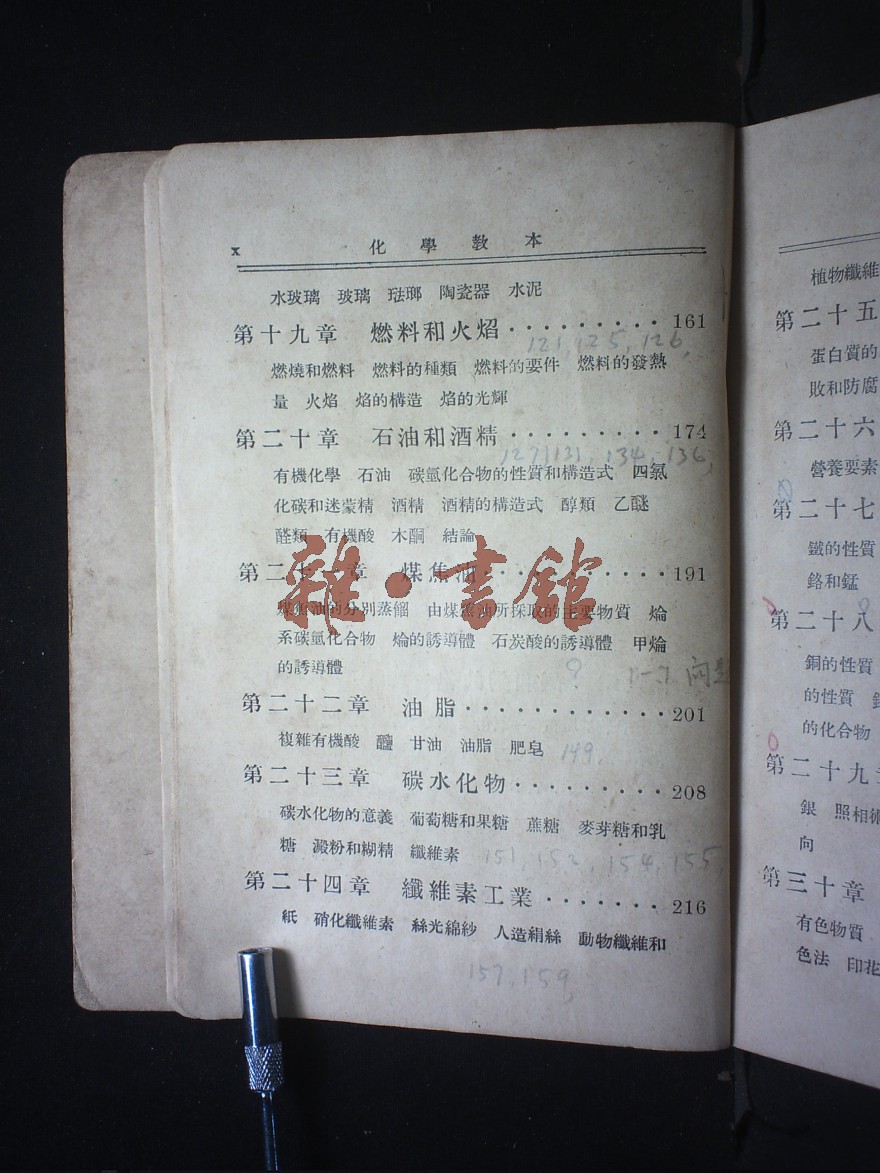 x 化學教本
水玻璃 玻璃 琺瑯 陶瓷器 水泥
第十九章 燃料和火焰·········161
121, 125, 126,
燃燒和燃料 燃料的種類 燃料的要件 燃料的發熱
量 火焰 焰的構造 焰的光輝
第二十章 石油和酒精·········174
127, 131, 134, 136,
有機化學 石油 碳氫化合物的性質和構造式 四氯
化碳和迷蒙精 酒精 酒精的構造式 醇類 乙醚
醛類 有機酸 木酮 結論
第二十一章 煤焦油··········191
煤焦油的分別蒸餾 由煤焦油所採取的主要物質 㷍
系碳氫化合物 㷍的誘導體 石炭酸的誘導體 甲㷍
的誘導體
第二十二章 油脂···········201
複雜有機酸 甘油 油脂 肥皂
149,
第二十三章 碳水化物·········208
碳水化物的意義 葡萄糖和果糖 蔗糖 麥芽糖和乳
糖 澱粉和糊精 纖維素
151, 152, 154, 155,
第二十四章 纖維素工業········216
紙 硝化纖維素 絲光綿紗 人造絹絲 動物纖維和
157, 159,
雜·書館
植物纖維
第二十五
蛋白質的
敗和防腐
第二十六
營養要素
第二十七
鐵的性質
鉻和錳
第二十八
銅的性質
的性質
的化合物
第二十九
銀 照相術
向
第三十章
有色物質
色法 印花